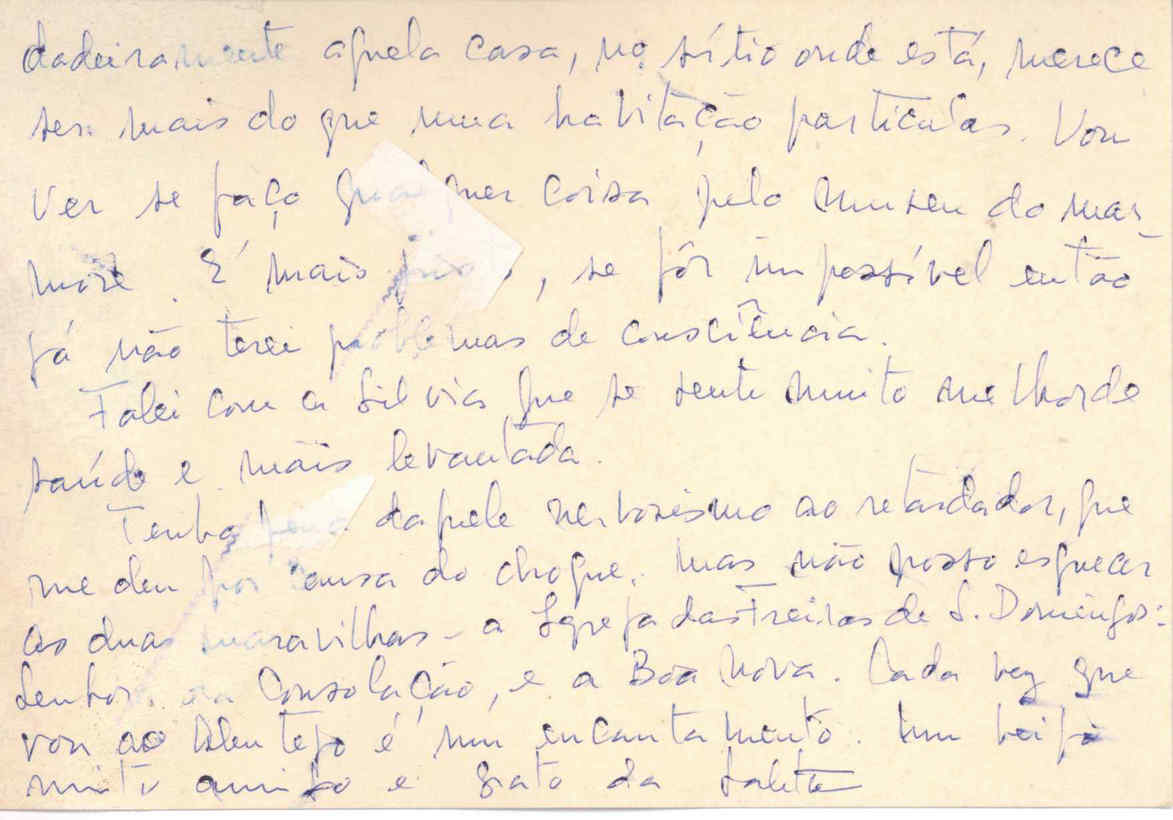 dadeiramente aquela casa, no sítio onde está, merece
ser mais do que uma habitação particular. Vou
ver se faço qualquer coisa pelo museu do mar-
more. É mais justo, se fôr impossível então
já não terei problemas de consciência.
Falei com a Silvia que se sente muito melhor de
saúde e mais levantada.
Tenho pena daquele nervosismo ao retardador, que
me deu por causa do choque, mas não posso esquecer
as duas maravilhas - a Igreja das Freiras de S. Domingos:
Senhora da Consolação, e a Boa Nova. Cada vez que
vou ao Alentejo é um encantamento. Um beijo
muito amigo e grato da Salette